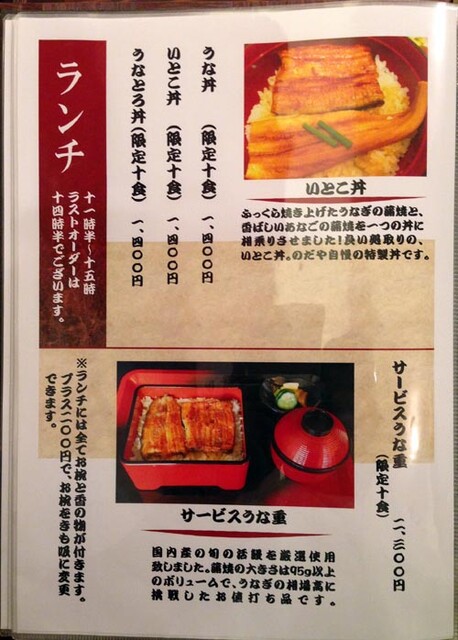 ランチ
十一時半〜十五時
ラストオーダーは
十四時半でございます。
うな丼（限定十食）一、四〇〇円
いとこ丼（限定十食）一、四〇〇円
うなとろ丼（限定十食）一、四〇〇円
いとこ丼
ふっくら焼き上げたうなぎの蒲焼と、
香ばしいあなごの蒲焼を一つの丼に
相乗りさせました！良い処取りの、
いとこ丼。のだや自慢の特製丼です。
サービスうな重
（限定十食）
二、三〇〇円
サービスうな重
国内産の旬の活鰻を厳選使用
致しました。蒲焼の大きさは95g以上
のボリュームで、うなぎの相場高に
挑戦したお値打ち品です。
※ランチには全てお椀と香の物が付きます。
プラス二〇〇円で、お椀をきも吸に変更
できます。